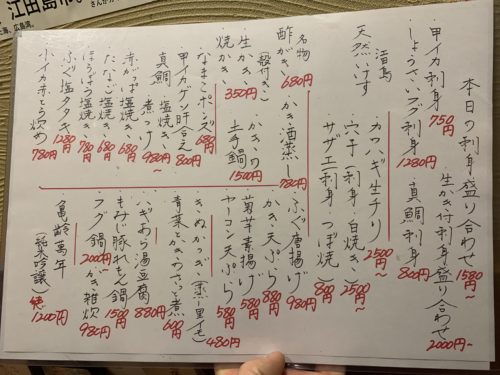 本日の刺身盛り合わせ 1580円~
生かき付刺身盛り合わせ 2000円~
甲イカ刺身 750円
しょうさいフグ刺身 1280円
真鯛刺身 800円
江田島
天然いけす
カワハギ生チリ 2500円~
穴子(刺身・白焼き) 2500円~
サザエ(刺身・つぼ焼) 800円
名物
酢がき 680円
かき酒蒸し 780円
(殻付き)
生かき
焼かき 350円
かきの
土手鍋 1500円
なまこポンズ 680円
甲イカゲソ肝合え 800円
真鯛 塩焼き、煮つけ 980円~
赤がっぱ塩焼き 680円
たなご塩焼き 680円
ほうぼう塩焼き 780円
ふぐ塩タタキ 1280円
小イカ赤とう炊め 780円
ふぐ唐揚げ 980円
かき天ぷら 880円
菊芋素揚げ 580円
ヤーコン天ぷら 580円
きぬかつぎ(蒸し里イモ) 480円
青菜とかきのさっと煮 600円
ハギあら湯豆腐 880円
もみじ豚れもん鍋 1500円
フグ鍋 2000円~
かき雑炊 980円
亀齢萬年
(純米吟醸) 1200円
江田島市